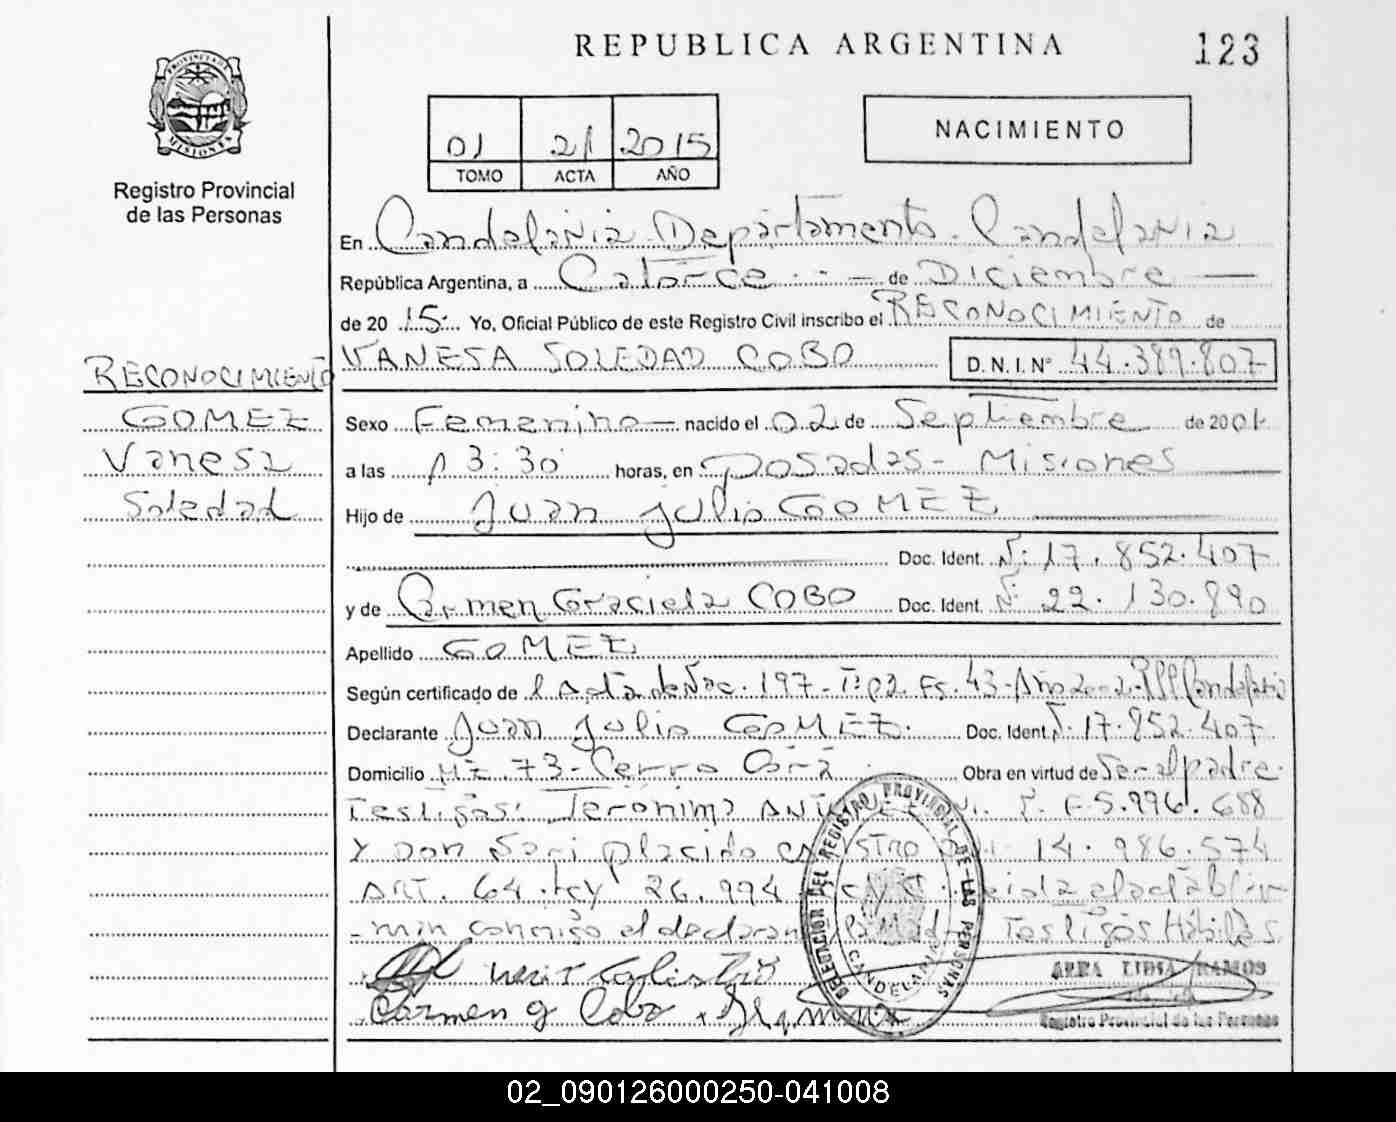 REPUBLICA ARGENTINA
123
PROVINCIA DE
MISIONES
Registro Provincial
de las Personas
01 21 2015
TOMO ACTA AÑO
NACIMIENTO
En Candelaria Departamento Candelaria
República Argentina, a Catorce de Diciembre
de 2015 Yo, Oficial Público de este Registro Civil inscribo el RECONOCIMIENTO de
VANESA SOLEDAD COBO D.N.I.Nº 44.389.807
RECONOCIMIENTO
GOMEZ
Vanesa
Soledad
Sexo Femenino nacido el 02 de Septiembre de 2001
a las 13:30 horas, en Posadas - Misiones
Hijo de Juan Julio GOMEZ
Doc. Ident. Nº: 17.852.407
y de Carmen Graciela COBO Doc. Ident. Nº 22.130.890
Apellido GOMEZ
Según certificado de Acta de Nac. 197 - Tº 02 Fs. 43 - Año 2002
Declarante Juan Julio GOMEZ. Doc. Ident. Nº 17.852.407
Domicilio MZ 73 - Cerro Corá Obra en virtud de Ser el padre.
Testigos: Jeronima F5.996.688
y don placido 14.986.574
ART. 64 Ley 26.994
conmigo el Testigos Hábiles
DELEGACION DEL REGISTRO PROVINCIAL DE LAS PERSONAS
CANDELARIA
LIDIA RAMOS
Carmen G Cobo
Registro Provincial de las Personas
02_090126000250-041008